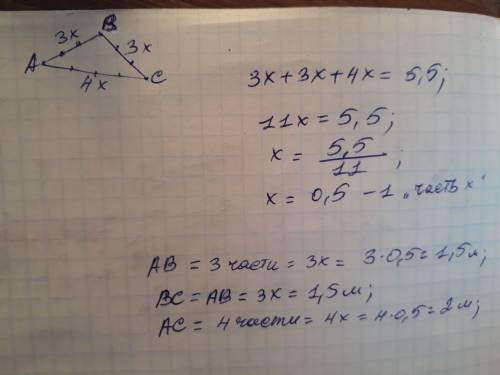 B
3x
3x
A
4x
C
3x + 3x + 4x = 5,5;
11x = 5,5;
x = 5,5/11;
x = 0,5 - 1 „часть x“
AB = 3 части = 3x = 3·0,5 = 1,5 м;
BC = AB = 3x = 1,5 м;
AC = 4 части = 4x = 4·0,5 = 2 м;